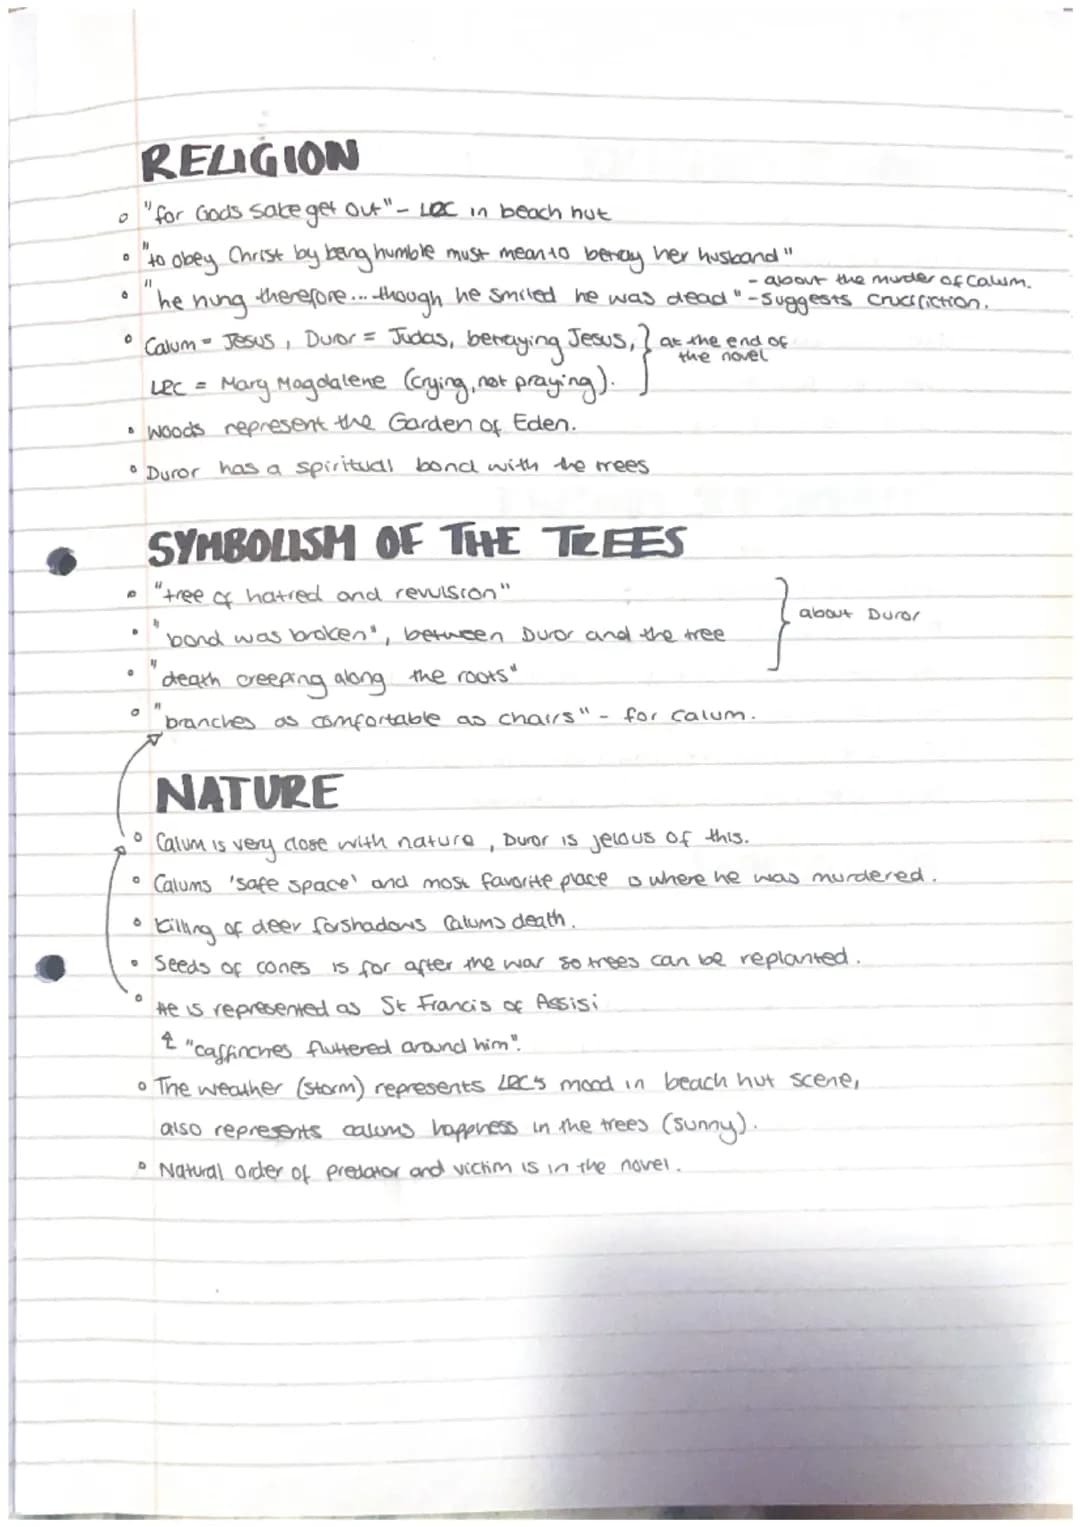 RELIGION
"for Gods sake get out" - LRC in beach hut
"to obey Christ by being humble must mean to betray her husband"
- about the murder of Calum.
"he hung therefore... though he smiled he was dead" - suggests crucifiction.
Calum = Jesus, Duror = Judas, betraying Jesus, } at the end of the novel
LRC = Mary Magdalene (crying, not praying).
Woods represent the Garden of Eden.
Duror has a spiritual bond with the trees
SYMBOLISM OF THE TREES
"tree of hatred and revulsion"
"bond was broken", between Duror and the tree } about Duror
"death creeping along the roots"
"branches as comfortable as chairs" - for Calum.
NATURE
Calum is very close with nature, Duror is jelous of this.
Calums 'safe space' and most favorite place is where he was murdered.
Killing of deer forshadows Calums death.
Seeds of cones is for after the war so trees can be replanted.
He is represented as St Francis of Assisi
"caffinches fluttered around him".
The weather (storm) represents LRC's mood in beach hut scene,
also represents calums happness in the trees (sunny).
Natural order of predator and victim is in the novel.